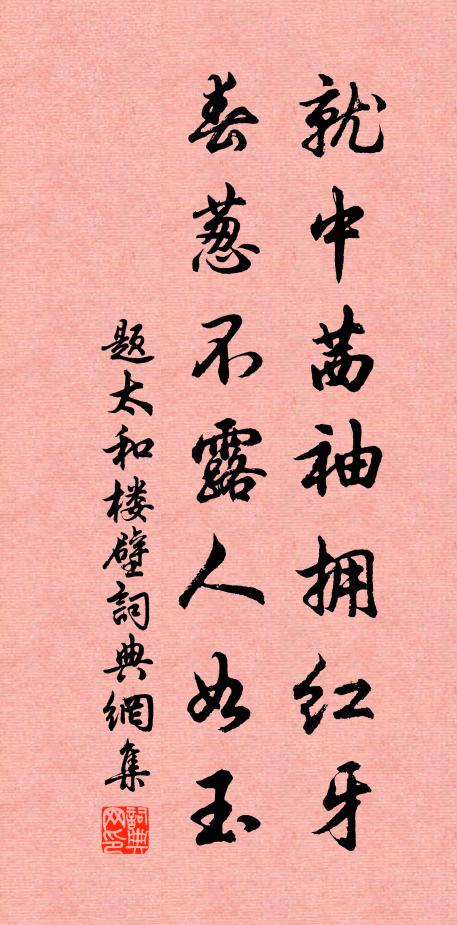 就中茜袖拥红牙
春葱不露人如玉
题太和楼壁詞典網集
詞典网印